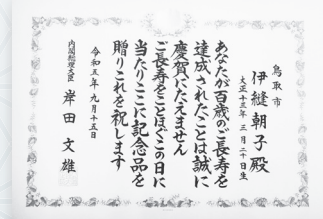 鳥取市
伊縫朝子殿
大正十三年三月二十日生
あなたが百歳のご長寿を
達成されたことは誠に
慶賀にたえません
ご長寿をことほぐこの日に
当たりここに記念品を
贈りこれを祝します
令和五年九月十五日
内閣総理大臣 岸田文雄